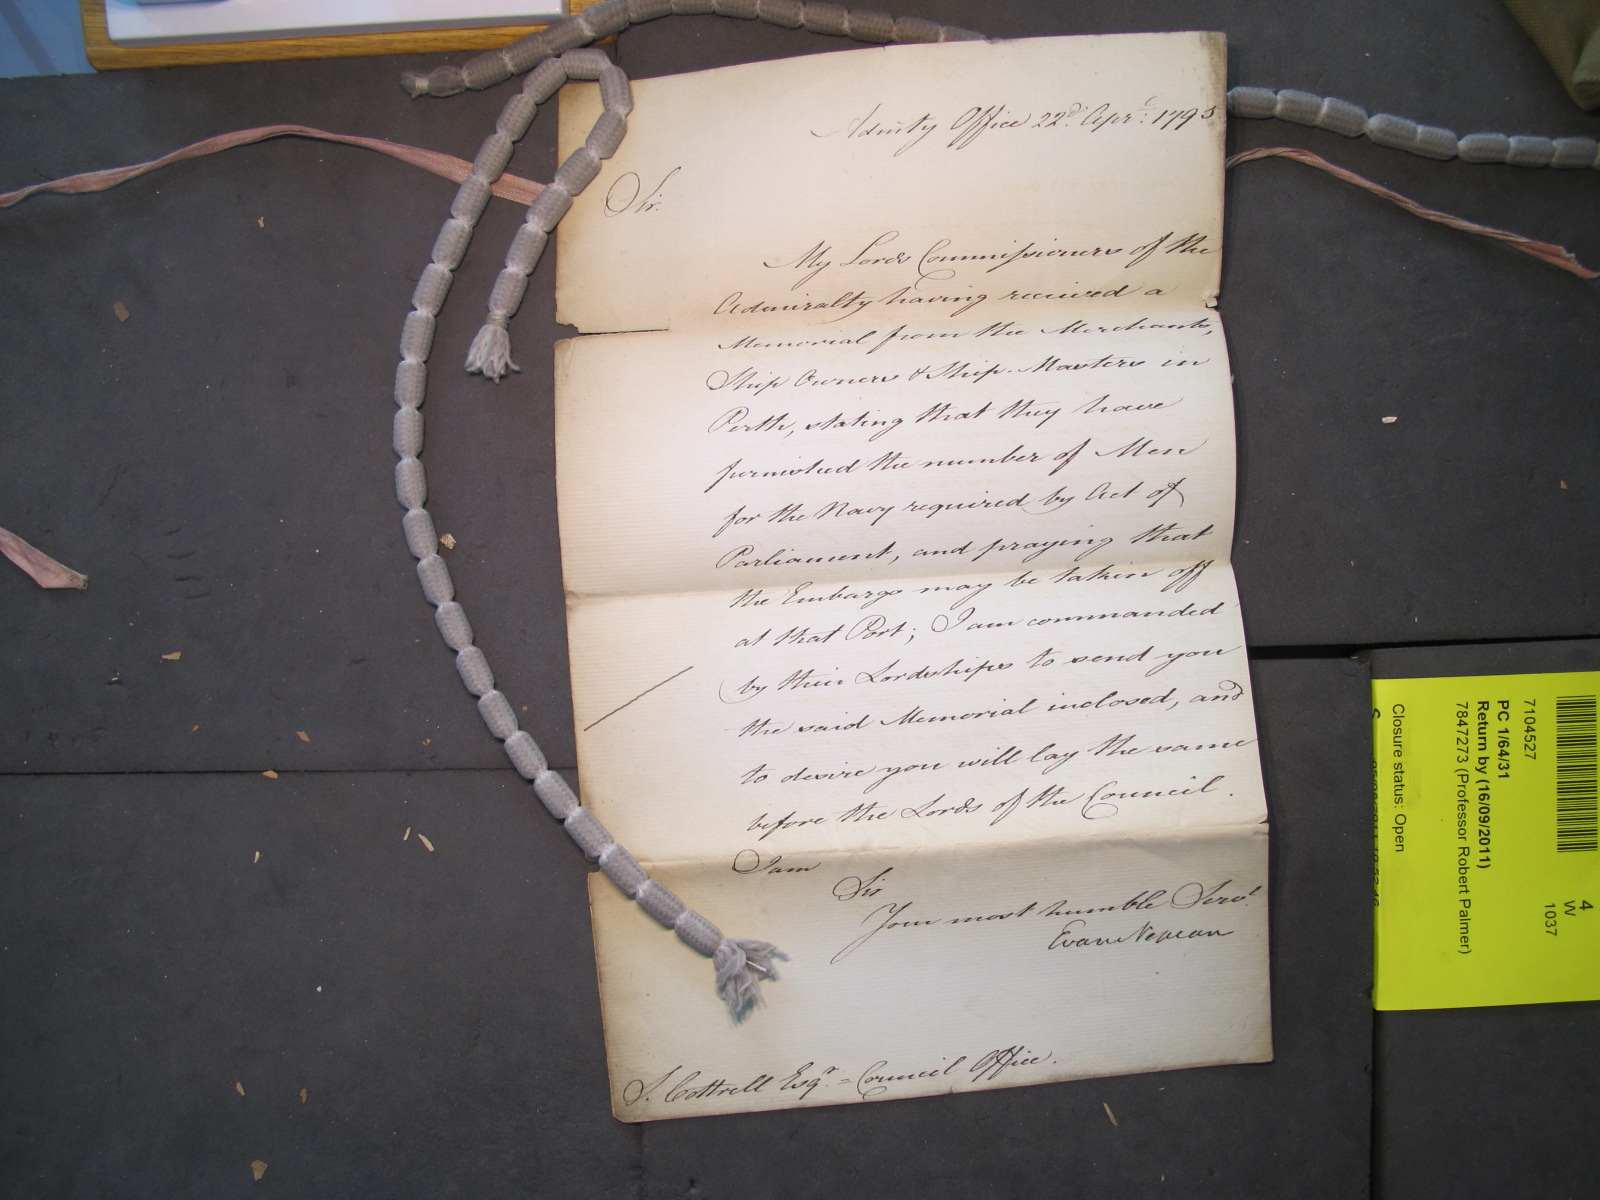 Admty Office 22d. Apr: 1795.
Sir.
My Lords Commissioners of the
Admiralty having received a
Memorial from the Merchants,
Ship Owners & Ship-Masters in
Perth, stating that they have
furnished the number of Men
for the Navy required by Act of
Parliament, and praying that
the Embargo may be taken off
at that Port; I am commanded
by their Lordships to send you
the said Memorial inclosed, and
to desire you will lay the same
before the Lords of the Council.
I am
Sir
Your most humble Servt.
Evan Nepean
S. Cottrell Esqr. = Council Office.
4
W
1037
7104527
PC 1/64/31
Return by (16/09/2011)
7847273 (Professor Robert Palmer)
Closure status: Open